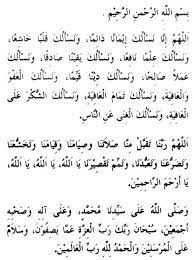 بِسْمِ اللهِ الرَّحْمَنِ الرَّحِيْمِ .
اَللّٰهُمَّ إِنَّا نَسْأَلُكَ إِيْمَانًا دَائِمًا، وَنَسْأَلُكَ قَلْبًا خَاشِعًا،
وَنَسْأَلُكَ عِلْمًا نَافِعًا، وَنَسْأَلُكَ يَقِيْنًا صَادِقًا، وَنَسْأَلُكَ
عَمَلاً صَالِحًا، وَنَسْأَلُكَ دِيْنًا قَيِّمًا، وَنَسْأَلُكَ العَفْوَ
وَالْعَافِيَةَ، وَنَسْأَلُكَ تَمَامَ العَافِيَةِ، وَنَسْأَلُكَ الشُّكْرَ عَلَى
العَافِيَةِ، وَنَسْأَلُكَ الْغِنَى عَنِ النَّاسِ.
اَللّٰهُمَّ رَبَّنَا تَقَبَّلْ مِنَّا صَلاَتَنَا وَصِيَامَنَا وَقِيَامَنَا وَتَخَشُّعَنَا
وَتَضَرُّعَنَا وَتَعَبُّدَنَا، وَتَمِّمْ تَقْصِيْرَنَا يَا اَللهُ، يَا اَللهُ، يَا اَللهُ،
يَا أَرْحَمَ الرَّاحِمِيْنَ.
وَصَلَّى اللهُ عَلَى سَيِّدِنَا مُحَمَّدٍ، وَعَلَى آلِهِ وَصَحْبِهِ
أَجْمَعِيْنَ، سُبْحَانَ رَبِّكَ رَبِّ الْعِزَّةِ عَمَّا يَصِفُوْنَ، وَسَلاَمٌ
عَلَى الْمُرْسَلِيْنَ وَالْحَمْدُ لِلّٰهِ رَبِّ الْعَالَمِيْنَ.